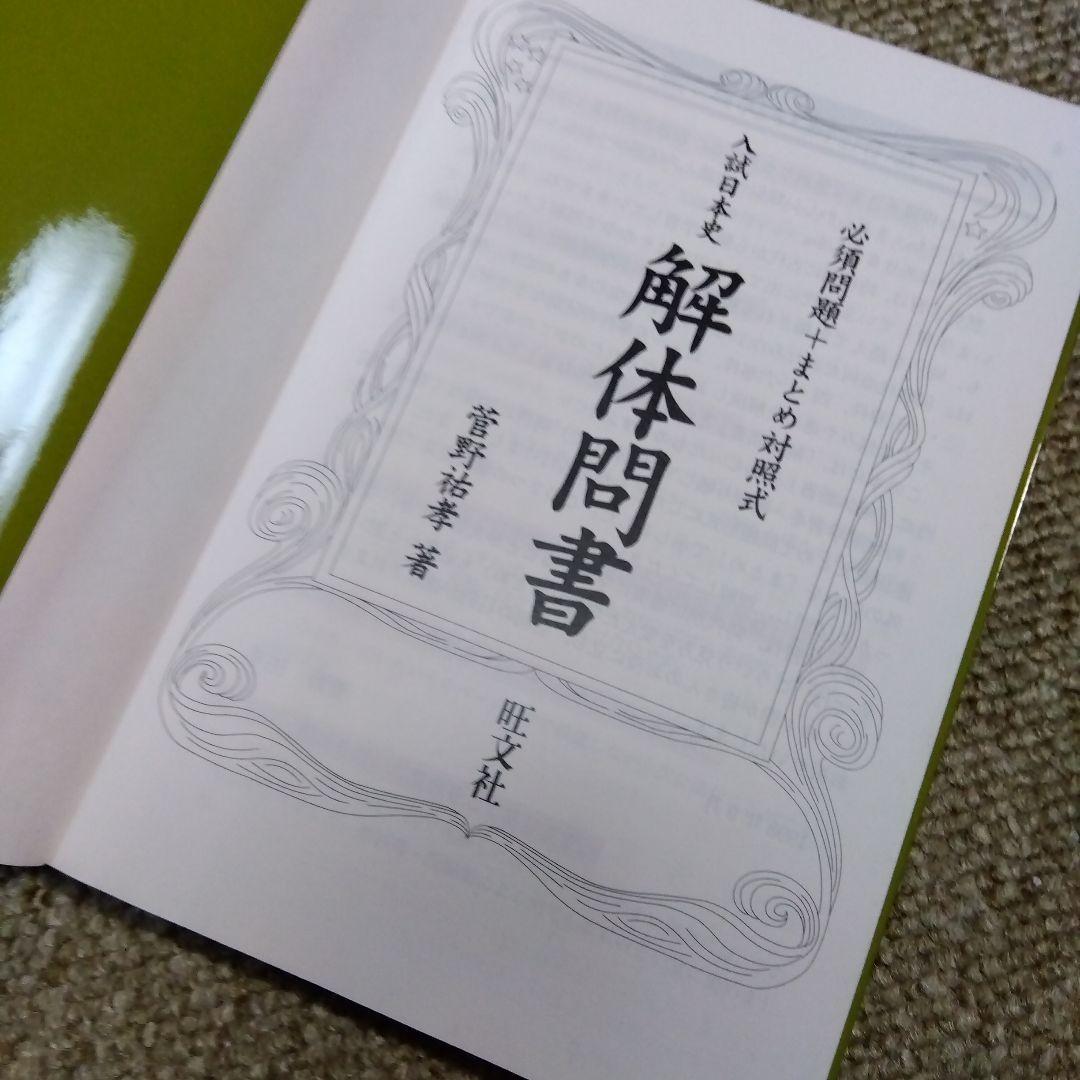 必須問題＋まとめ対照式
入試日本史
解体問書
菅野祐孝 著
旺文社